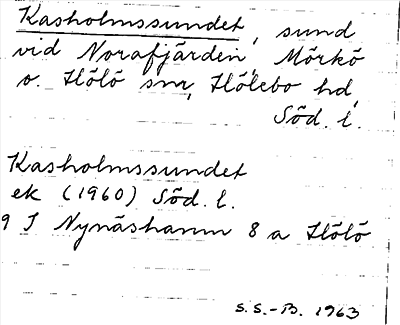 Kasholmssundet, sund
vid Norafjärden, Mörkö
o. Hölö snr, Hölebo hd,
Söd. l.
Kasholmssundet
ek (1960) Söd. l.
9 I Nynäshamn 8 a Hölö
S.S.-B. 1963